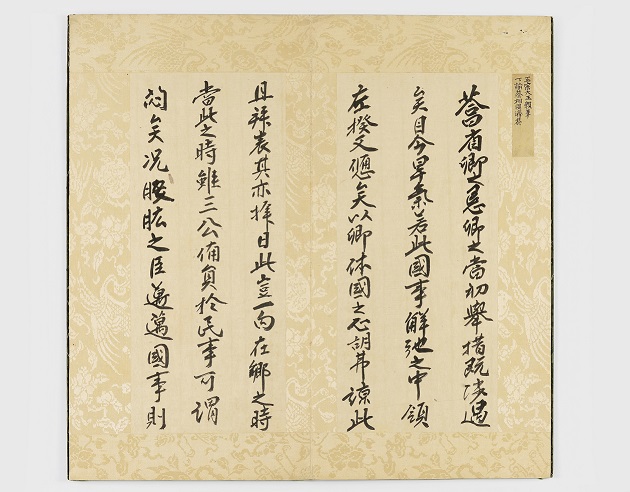 英宗大王親筆
下諭蔡相國濟恭
答省卿之卿之當初擧措旣涉過
矣目今旱氣若此國事解弛之中領
左揆又矣以卿体國之心胡弗諒此
且表其亦日此豈一向在鄉之時
當此之時雖三公備員於民事可謂
悶矣况眩之臣邁邁國事則